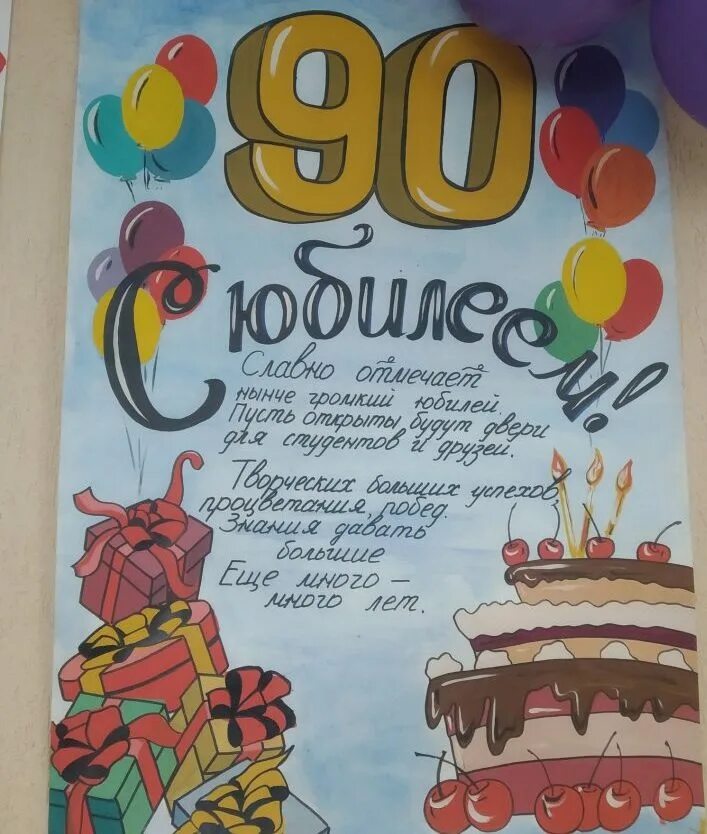 90
С юбилеем!
Славно отмечает
нынче громкий юбилей.
Пусть открыты будут двери
для студентов и друзей.
Творческих больших успехов,
процветания, побед.
Знания давать
большие
Еще много –
много лет.